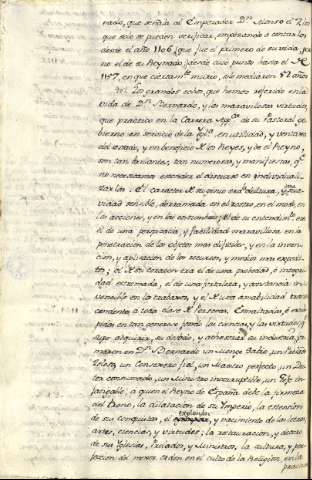 nado, que señala al Emperador Dn. Alonso el 7.
que solo se pueden verificar, empezando a contarlos
desde el año 1106, que fue el primero de su vida, y
no el de su Reynado, desde cuio punto hasta el de
1157, en que murio, mediaron 51 años
Los grandes echos, que hemos referido en la
vida de Dn. Bernardo, y las maravillosas virtudes,
que practicó en la Carrera de su Pastoral go-
bierno en servicio de la Iglª., en utilidad, y ventura
del estado, y en beneficio de los Reyes, y de el Reyno,
son tan brillantes, tan numerosas, y manifiestas, qe.
no necesitamos extender el discurso en individuali-
zarlas. El caracter de su genio era dulzura, y
vidad sensible, derramada en el rostro, en el modo, en
las acciones, y en las costumbres; el de su entendimto. era
el de una perspicacia, y facilidad maravillosa en la
penetracion de los objetos mas dificiles, y en la inven-
cion, y aplicacion de los recursos, y medios mas expedi-
tos; el de su corazon era el de una piedad, e integri-
dad extremada, el de una fortaleza, y constancia in-
vencible en los trabajos, y el de una amabilidad trans-
cendental a toda clase de Personas. Enriquecido, o anti-
pado en tan generoso fondo las ciencias, y las virtudes, q
luego adquiera, su estudio, y vehemente su industria, for-
maron en Dn. Bernardo un Monge Sabio, un Politico
, un Consejero fiel, un Maestro perfecto, un Doc-
tor consumado, un Ministro incorruptible, un Gefe in-
fatigable, a quien el Reyno de España debe la firmeza
del Trono, la dilatacion de su Imperio, la extension
de sus conquistas, el explendor, y nacimiento de las letras,
artes, ciencias, y virtudes, la restauracion, y decoro
de sus Iglesias, Prelados, y Ministros, la cultura, y per-
feccion del nuevo orden en el culto de la Religion, en la